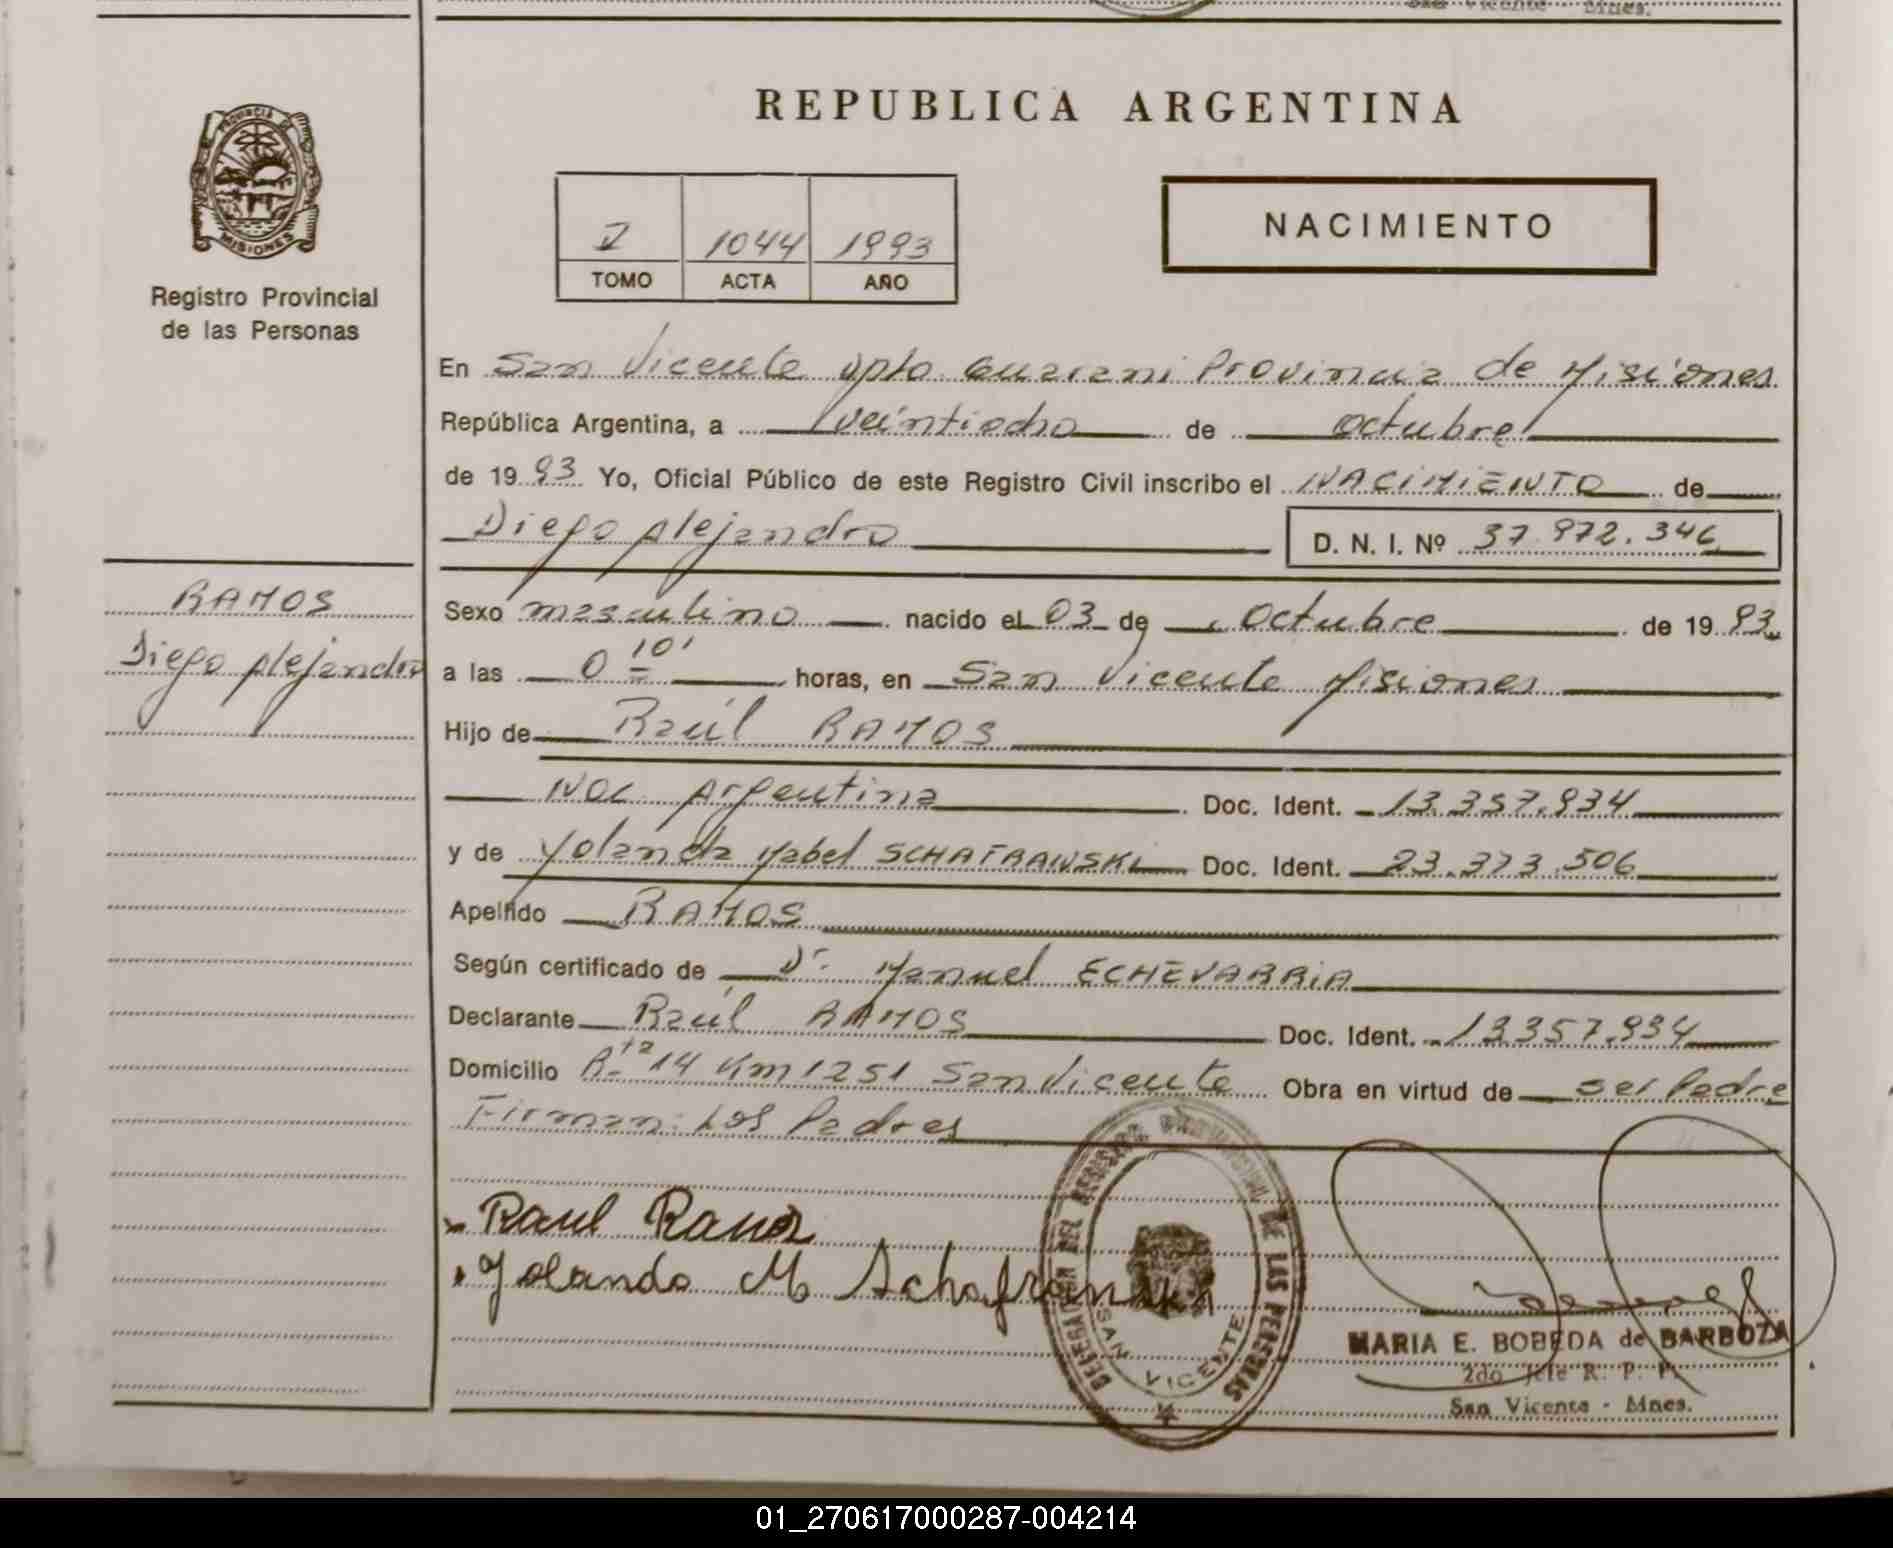 San Vicente - Mnes.
PROVINCIA DE
MISIONES
Registro Provincial
de las Personas
REPUBLICA ARGENTINA
NACIMIENTO
I 1044 1993
TOMO ACTA AÑO
En San Vicente Dpto. Guarani Provincia de Misiones
República Argentina, a veintiocho de octubre
de 1993 Yo, Oficial Público de este Registro Civil inscribo el NACIMIENTO de
Diego Alejandro D. N. I. Nº 37.972.346
RAMOS
Diego Alejandro
Sexo masculino nacido el 03 de Octubre de 1993
a las 0 10' horas, en San Vicente Misiones
Hijo de Raúl RAMOS
Nac. Argentina Doc. Ident. 13.357.934
y de Yolanda Mabel SCHAFRANSKI Doc. Ident. 23.373.506
Apellido RAMOS
Según certificado de Dr. Manuel ECHEVARRIA
Declarante Raúl RAMOS Doc. Ident. 13.357.934
Domicilio R. 14 Km 1251 San Vicente Obra en virtud de ser Padre
Firman: Los Padres
Raul Ramos
Yolanda M Schafranski
DELEGACION DEL REGISTRO PROVINCIAL DE LAS PERSONAS
SAN VICENTE
MARIA E. BOBEDA de BARBOZA
2do Jefe R. P. P.
San Vicente - Mnes.
01_270617000287-004214